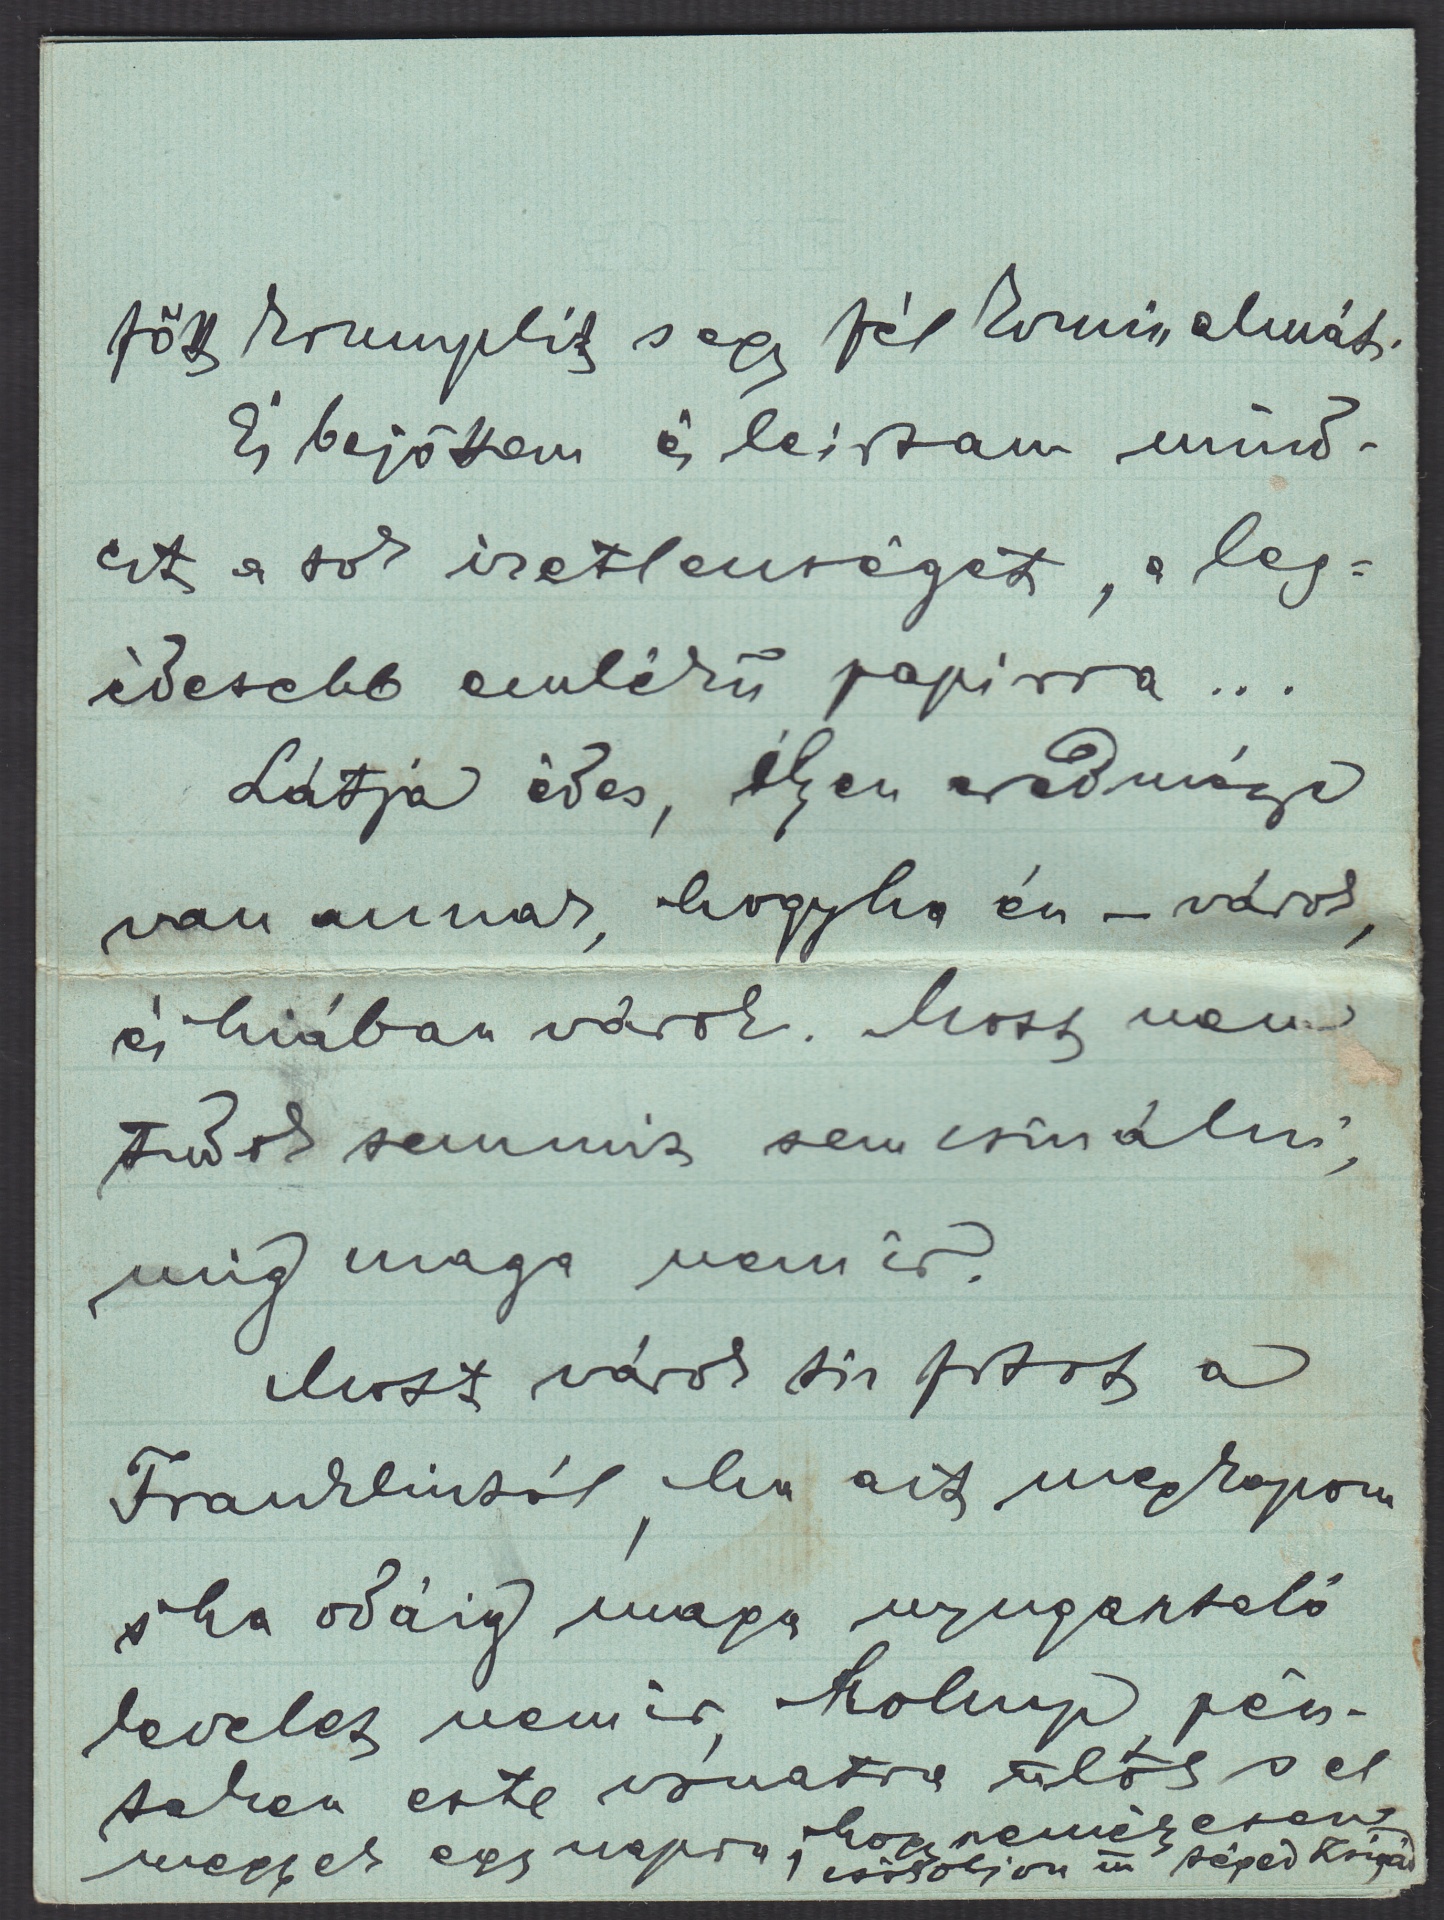 főtt krumplit s egy fél kormin almát.
És bejöttem és leirtam mind-
ezt a sok izetlenséget, a leg=
édesebb emlékű papirra ...
Látja édes, ilyen eredménye
van annak, hogyha én — várok,
és hiában várok. Most nem
tudok semmit sem csinálni,
mig maga nem ir.
Most várok tiz frtot a
Franklintól, ha azt megkapom
s ha odáig maga nyugastaló
levelet nem ir, holnap pén-
teken este vonatra ülök s el
megyek egy napra, hogy személyesen
csókoljon